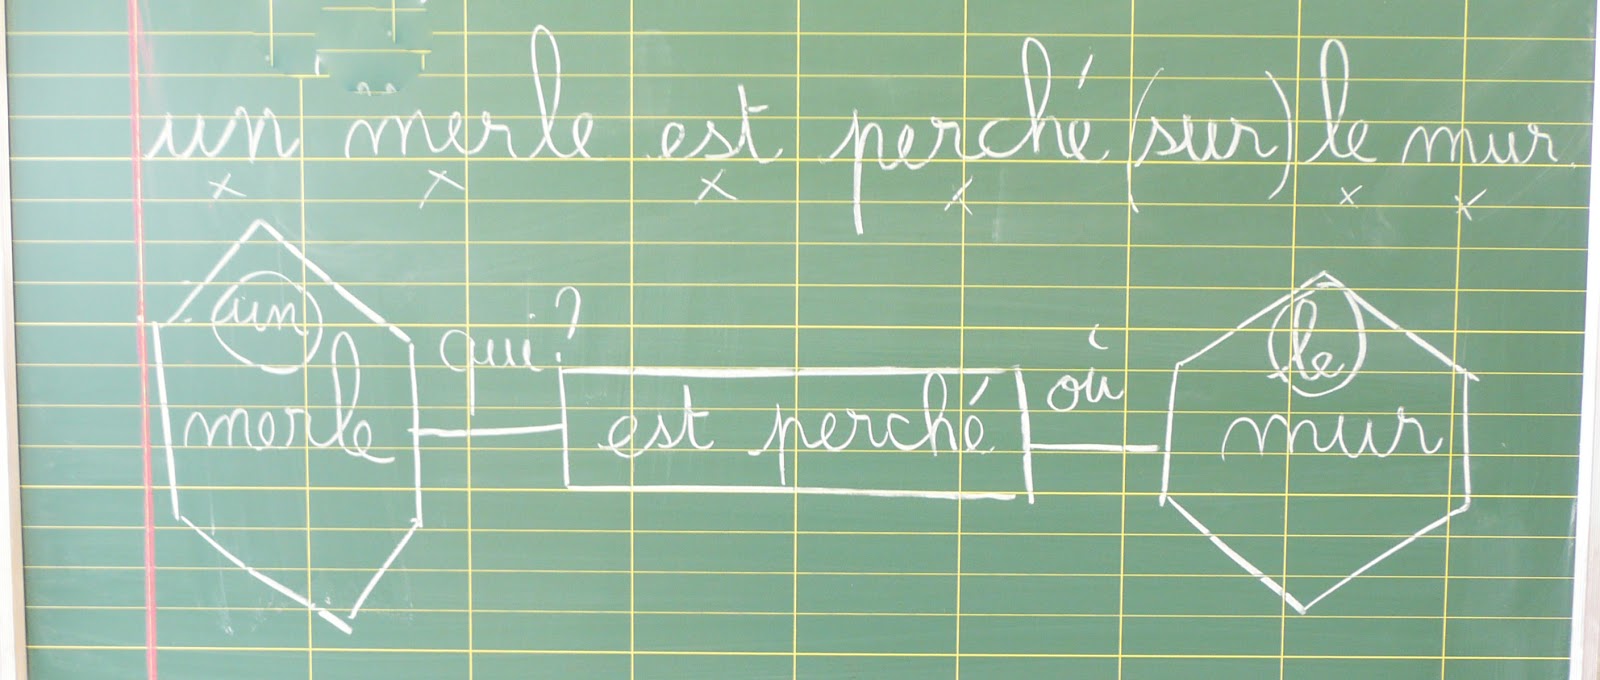 un merle est perché (sur) le mur.
x x x x x x
un
merle
qui?
est perché
où
le
mur